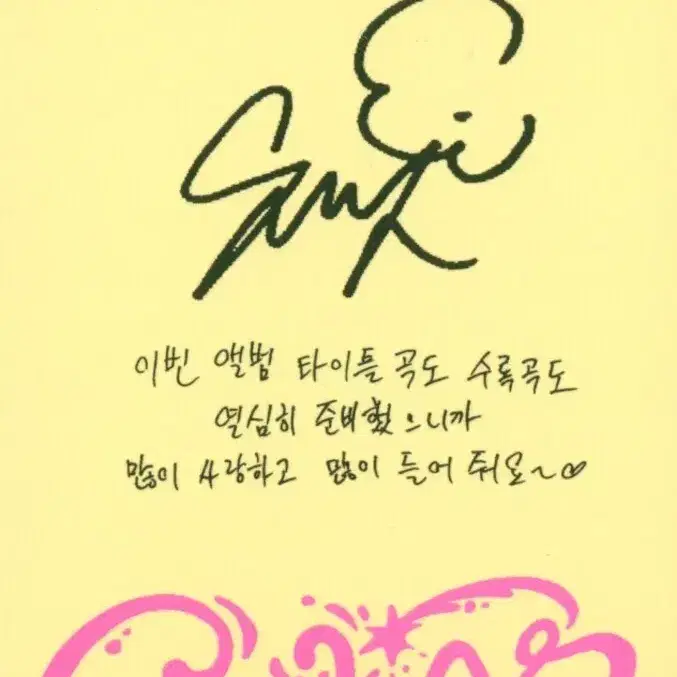 이번 앨범 타이틀곡도 수록곡도
열심히 준비했으니까
많이 사랑하고 많이 들어 줘요~♡